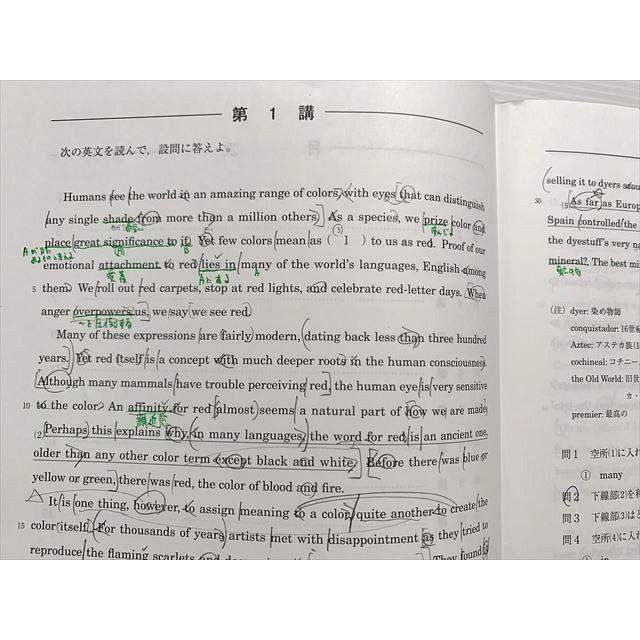 第 1 講
次の英文を読んで，設問に答えよ。
Humans see the world in an amazing range of colors, with eyes that can distinguish
any single shade from more than a million others. As a species, we prize color and
place great significance to it. Yet few colors mean as ( 1 ) to us as red. Proof of our
emotional attachment to red lies in many of the world's languages, English among
5 them. We roll out red carpets, stop at red lights, and celebrate red-letter days. When
anger overpowers us, we say we see red.
～を圧倒する
Many of these expressions are fairly modern, dating back less than three hundred
years. Yet red itself is a concept with much deeper roots in the human consciousness.
Although many mammals have trouble perceiving red, the human eye is very sensitive
10 to the color. An affinity for red almost seems a natural part of how we are made.
親近感
(2) Perhaps this explains why, in many languages, the word for red is an ancient one,
older than any other color term except black and white. Before there was blue or
yellow or green, there was red, the color of blood and fire.
It is one thing, however, to assign meaning to a color, quite another to create the
15 color itself. For thousands of years artists met with disappointment as they tried to
reproduce the flaming scarlets and They found
selling it to dyers
30 (5) As far as Europ
Spain controlled the
the dyestuff's very na
mineral? The best mi
鉱物
(注) dyer: 染め物師
conquistador: 16世紀
Aztec: アステカ族(1
cochineal: コチニー
the Old World: 旧世
カ・
premier: 最高の
問1 空所(1)に入れ
① many
問2 下線部(2)を和
問3 下線部(3)はど
問4 空所(4)に入れ
① in